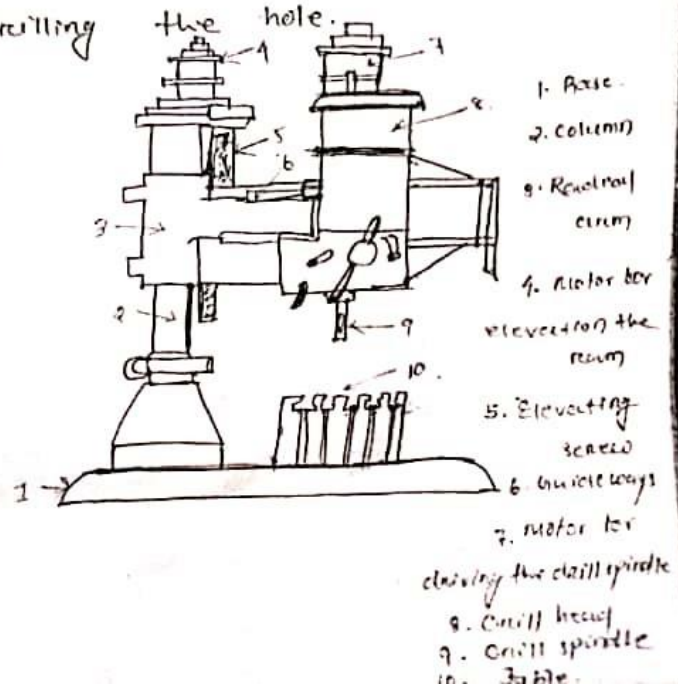 drilling the hole.
4
7
8
5
6
3
2
9
10
1
1. Base
2. Column
3. Readraf arm
4. Motor for
elevation the
ream
5. Elevating
screw
6. Guideways
7. Motor for
driving the drill spindle
8. Drill head
9. Drill spindle
10. Table.